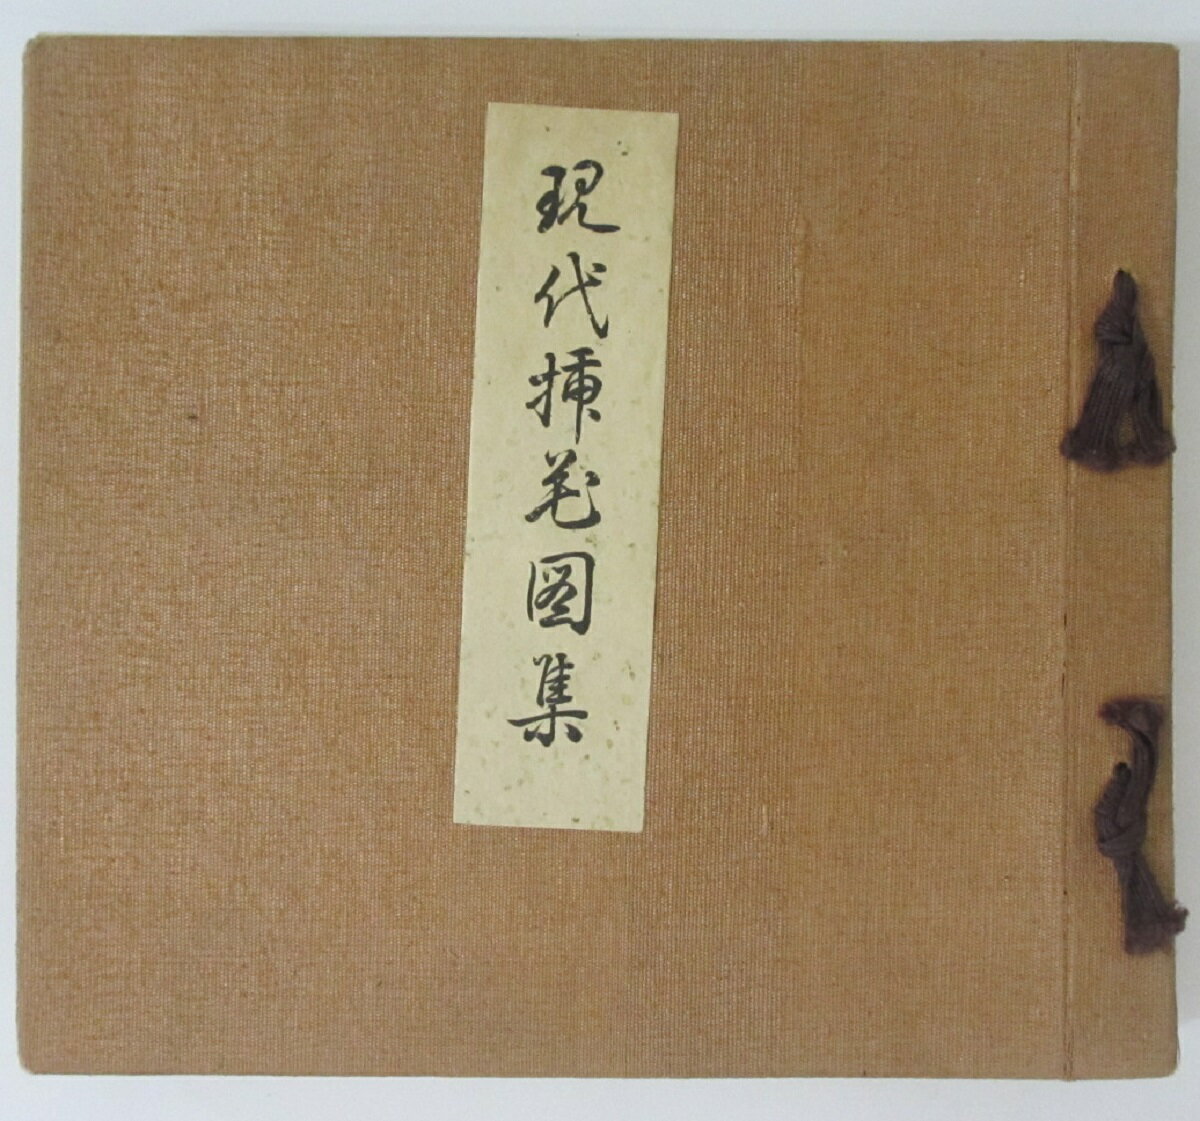 現代挿花図集